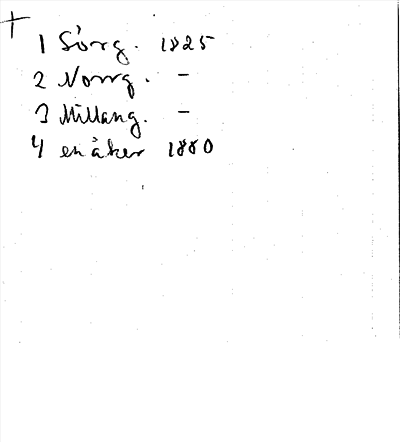 1 Sörg. 1825
2 Norrg. –
3 Millang. –
4 en åker 1880